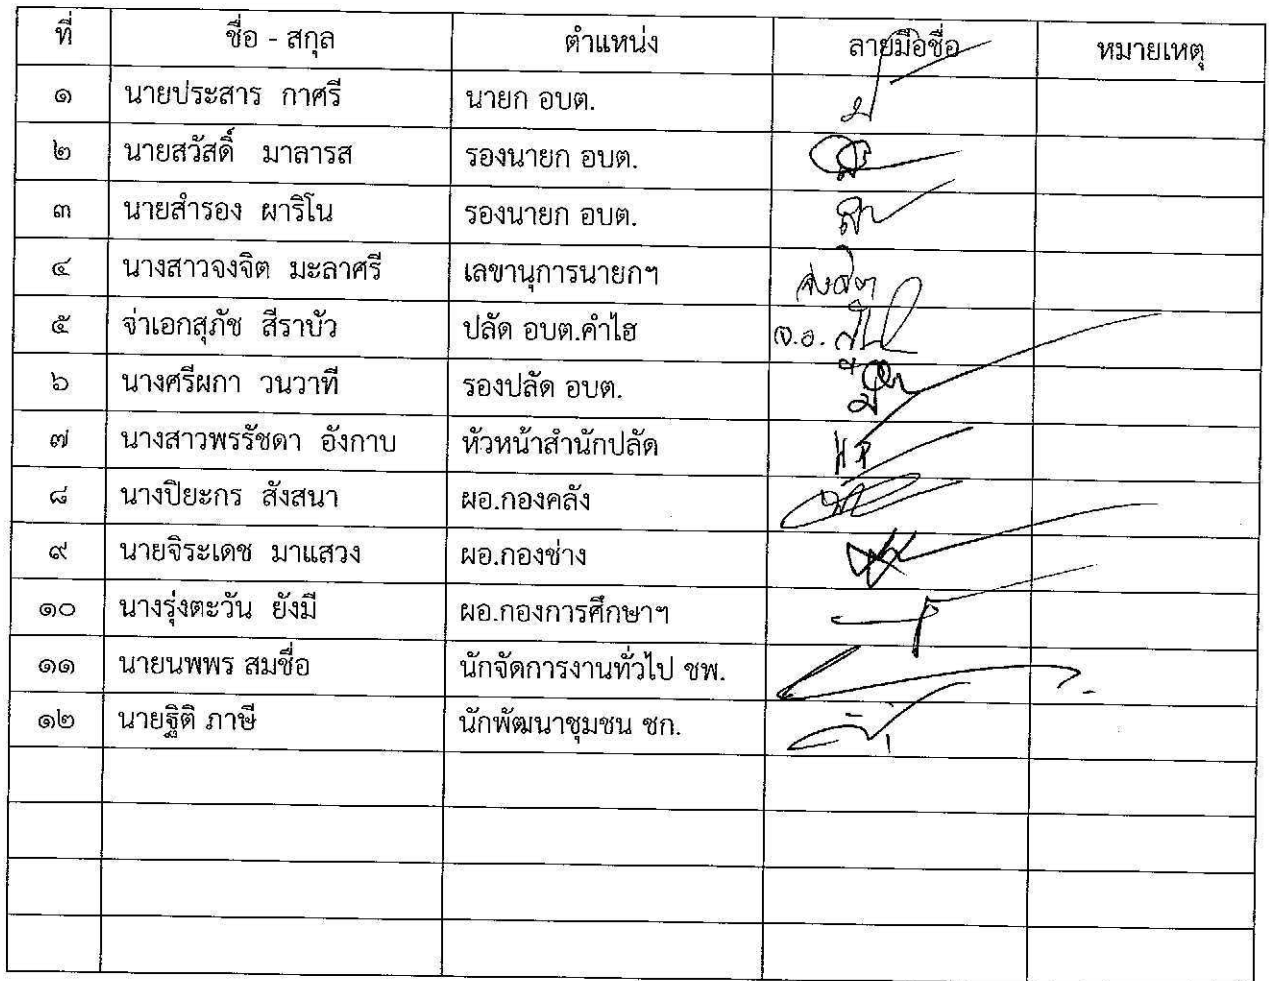 ที่ ชื่อ - สกุล ตำแหน่ง ลายมือชื่อ หมายเหตุ
๑ นายประสาร กาศรี นายก อบต.
๒ นายสวัสดิ์ มาลารส รองนายก อบต.
๓ นายสำรอง ผาริโน รองนายก อบต.
๔ นางสาวจงจิต มะลาศรี เลขานุการนายกฯ จงจิต
๕ จ่าเอกสุภัช สีราบัว ปลัด อบต.คำไฮ จ.อ.
๖ นางศรีผกา วนวาที รองปลัด อบต.
๗ นางสาวพรรัชดา อังกาบ หัวหน้าสำนักปลัด
๘ นางปิยะกร สังสนา ผอ.กองคลัง
๙ นายจิระเดช มาแสวง ผอ.กองช่าง
๑๐ นางรุ่งตะวัน ยังมี ผอ.กองการศึกษาฯ
๑๑ นายนพพร สมชื่อ นักจัดการงานทั่วไป ชพ.
๑๒ นายฐิติ ภาษี นักพัฒนาชุมชน ชก.